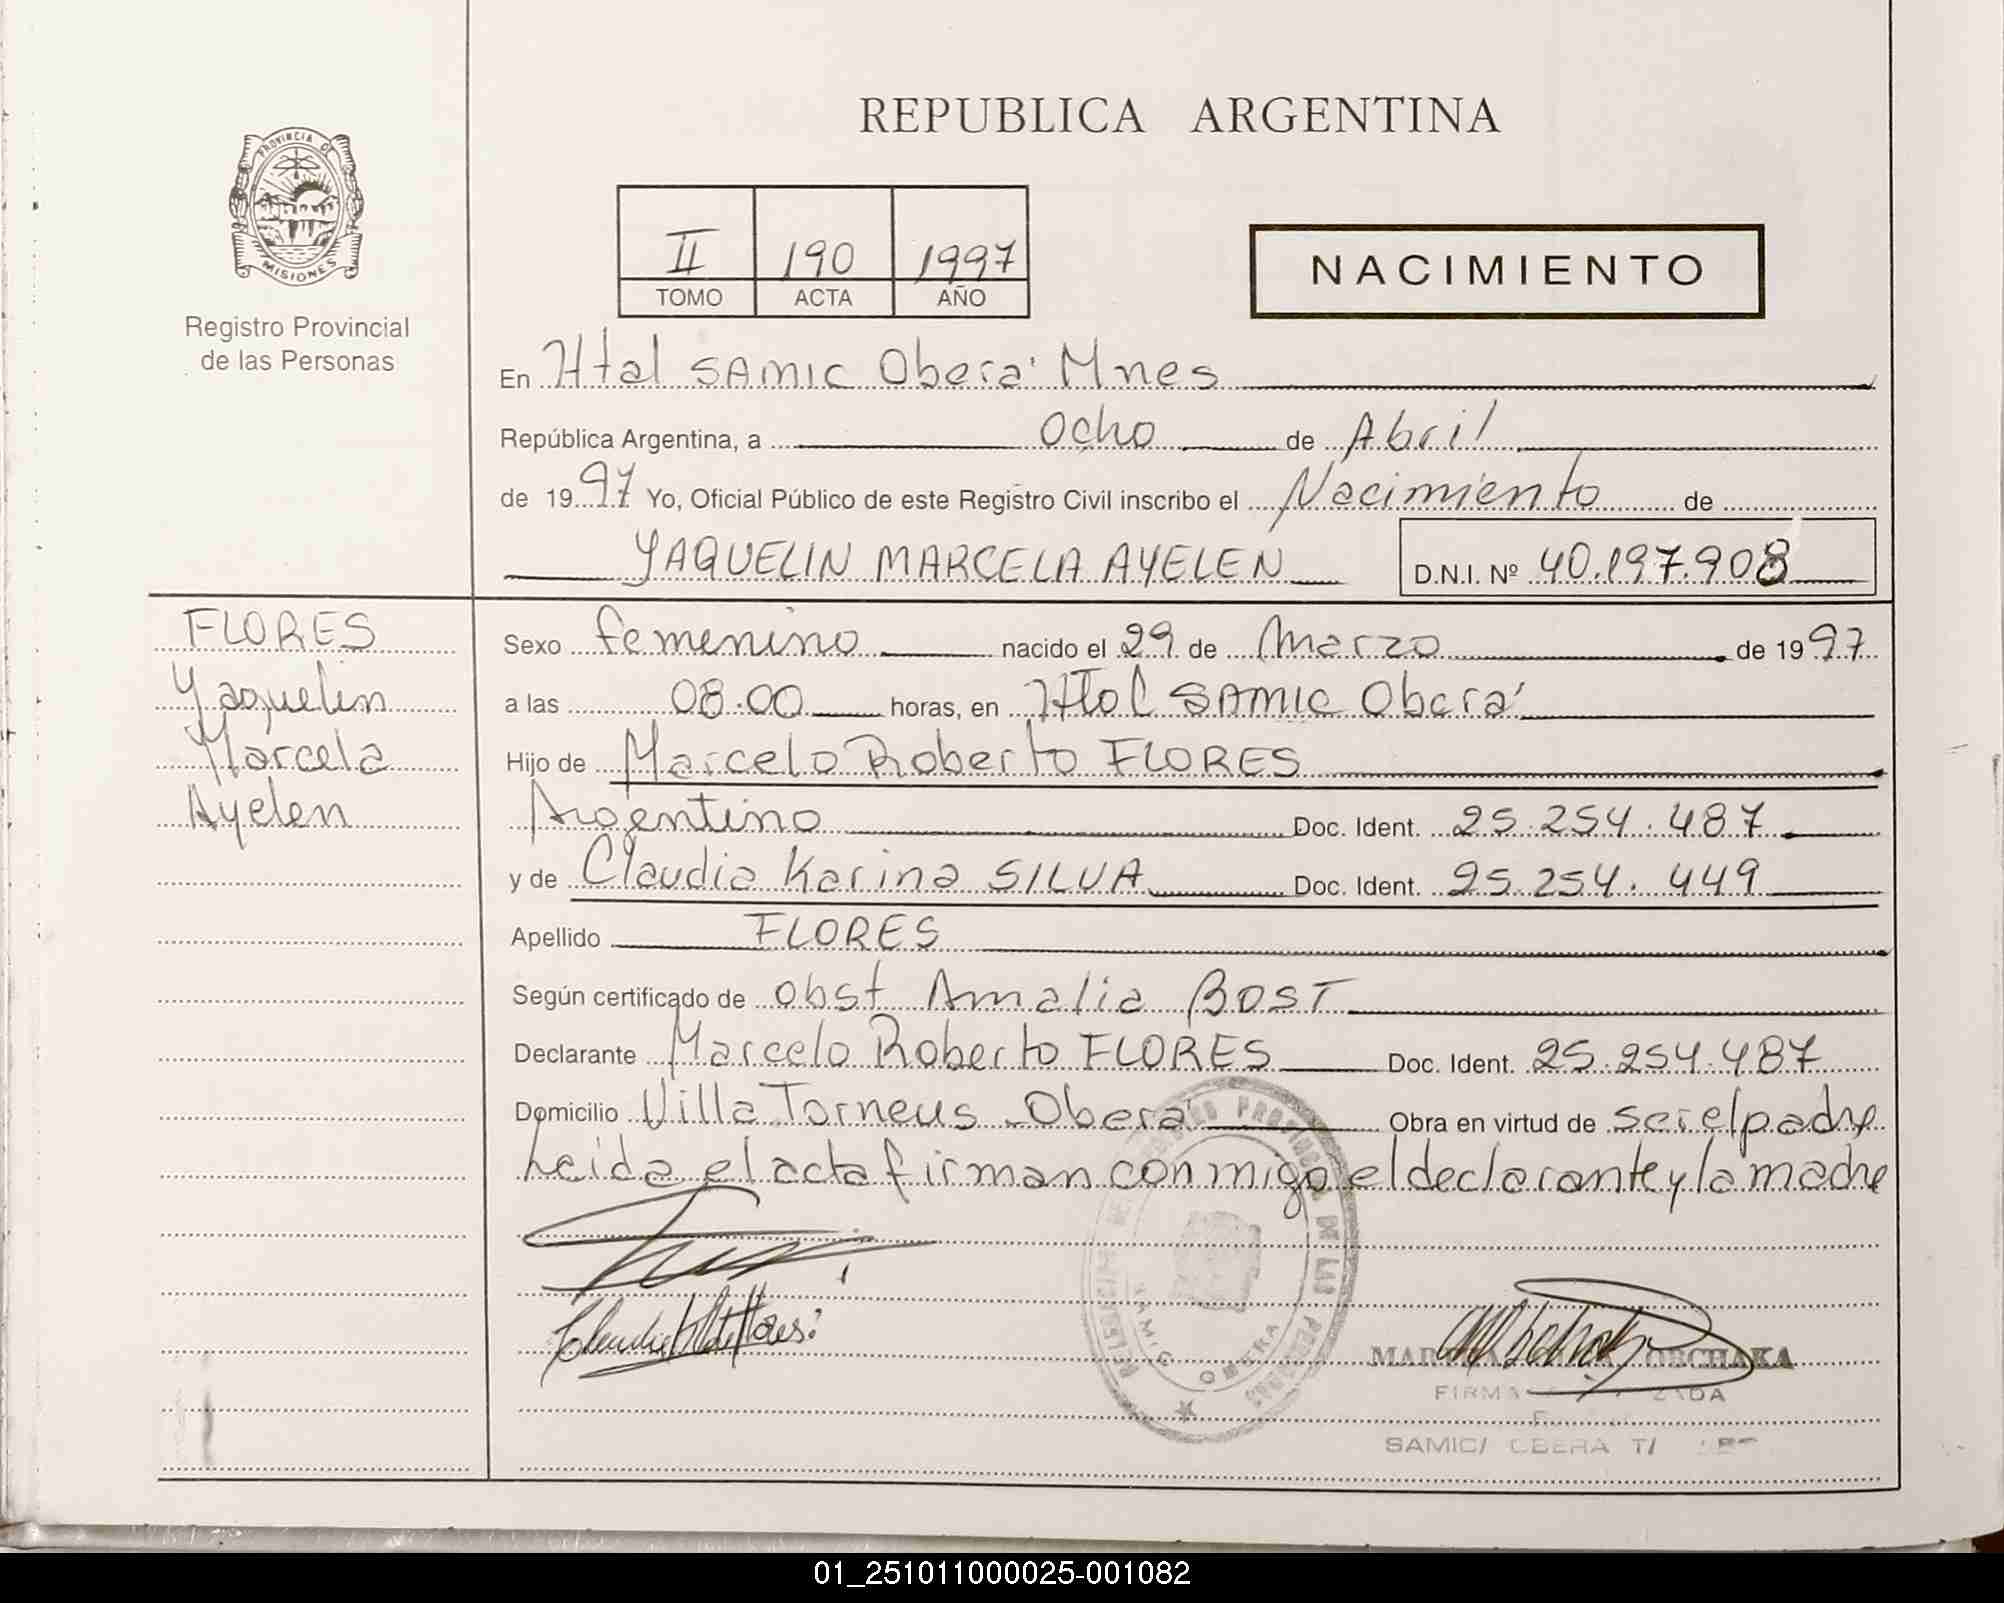 PROVINCIA DE
MISIONES
Registro Provincial
de las Personas
REPUBLICA ARGENTINA
II 190 1997
TOMO ACTA AÑO
NACIMIENTO
En Htal SAMIC Oberá Mnes
República Argentina, a Ocho de Abril
de 1997 Yo, Oficial Público de este Registro Civil inscribo el Nacimiento de
YAQUELIN MARCELA AYELEN D.N.I. Nº 40.197.908
FLORES
Yaquelin
Marcela
Ayelen
Sexo femenino nacido el 29 de Marzo de 1997
a las 08.00 horas, en Htal SAMIC Oberá
Hijo de Marcelo Roberto FLORES
Argentino Doc. Ident. 25.254.487
y de Claudia Karina SILVA Doc. Ident. 25.254.449
Apellido FLORES
Según certificado de obst Amalia BOST
Declarante Marcelo Roberto FLORES Doc. Ident. 25.254.487
Domicilio Villa Torneus - Oberá Obra en virtud de ser el padre
Leida el acta firman conmigo el declarante y la madre
PROVINCIAL DE LAS PERSONAS
SAMIC OBERA
OBCHAKA
FIRMA
SAMIC/ OBERA
01_251011000025-001082